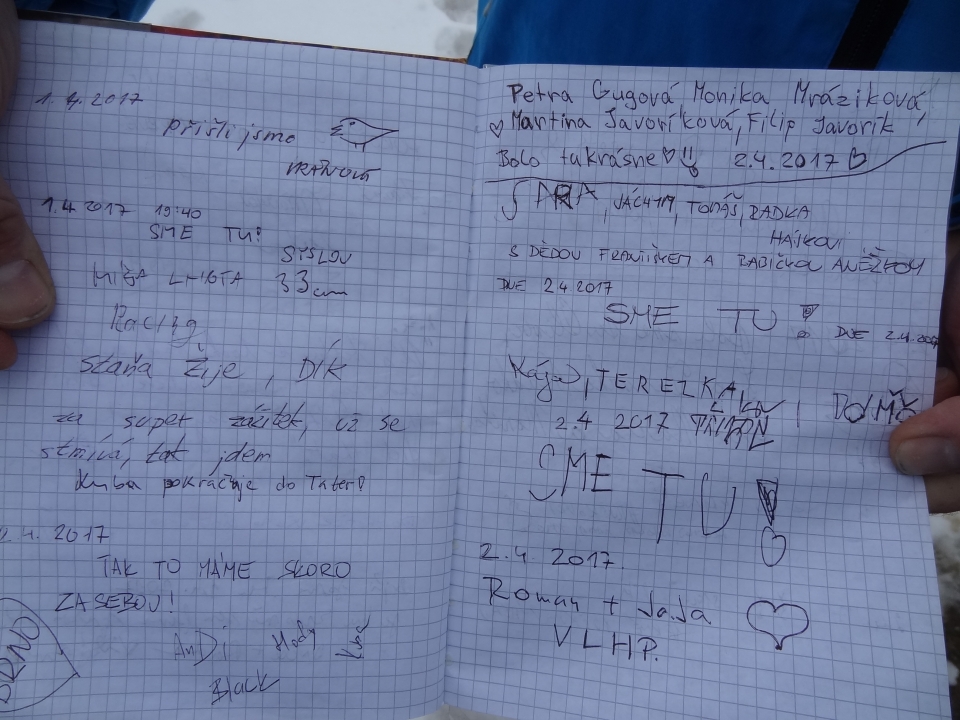 1. 4. 2017
Přišli jsme
VRÁNOVÁ
1.4 2017 19:40
SME TU!
SYSLOV
MÍŠA LHOTA 33cm
Racing
Staňa Žije, DÍK
za super zážitek, už se
stmívá, tak jdem
Kuba pokračuje do Tater!
2. 4. 2017
TAK TO MÁME SKORO
ZA SEBOU!
BRNO
AnDi Hody
Black
Petra Gugová Monika Mráziková,
Martina Javoríková, Filip Javorík
Bolo takrásne 2.4.2017
JÁCHYM, TOMÁŠ, RADKA
HÁJKOVI
S DĚDOU FRANTIŠKEM A BABIČKOU ANEŽKOU
DNE 2.4 2017
SME TU! DNE 2.4.2017
Kája, TEREZKA
2.4 2017
SME TU!
2.4. 2017.
Roman + JaJa
VLHP.